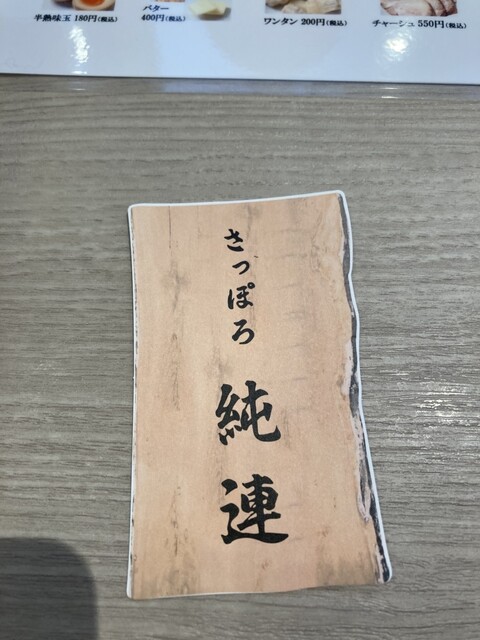 半熟味玉 180円(税込)
バター
400円(税込)
ワンタン 200円(税込)
チャーシュ 550円(税込)
さっぽろ
純連